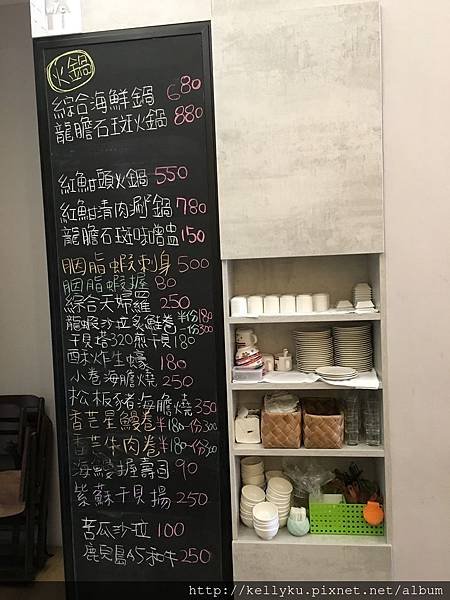 火鍋
綜合海鮮鍋 680
龍膽石斑火鍋 880
紅魽頭火鍋 550
紅魽清肉涮鍋 780
龍膽石斑味噌盅 150
胭脂蝦刺身 500
胭脂蝦握 80
綜合天婦羅 250
龍蝦沙拉炙鮭卷 半份180 一份300
干貝塔320 煎干貝180
酥炸生蠔 180
小卷海膽燒 250
松板豬海膽燒 350
香芒星鰻卷 半180 一份300
香芒牛肉卷 半180 一份300
海鰻握壽司 90
紫蘇干貝揚 250
苦瓜沙拉 100
鹿兒島A5和牛 250
http://kellyku.pixnet.net/album